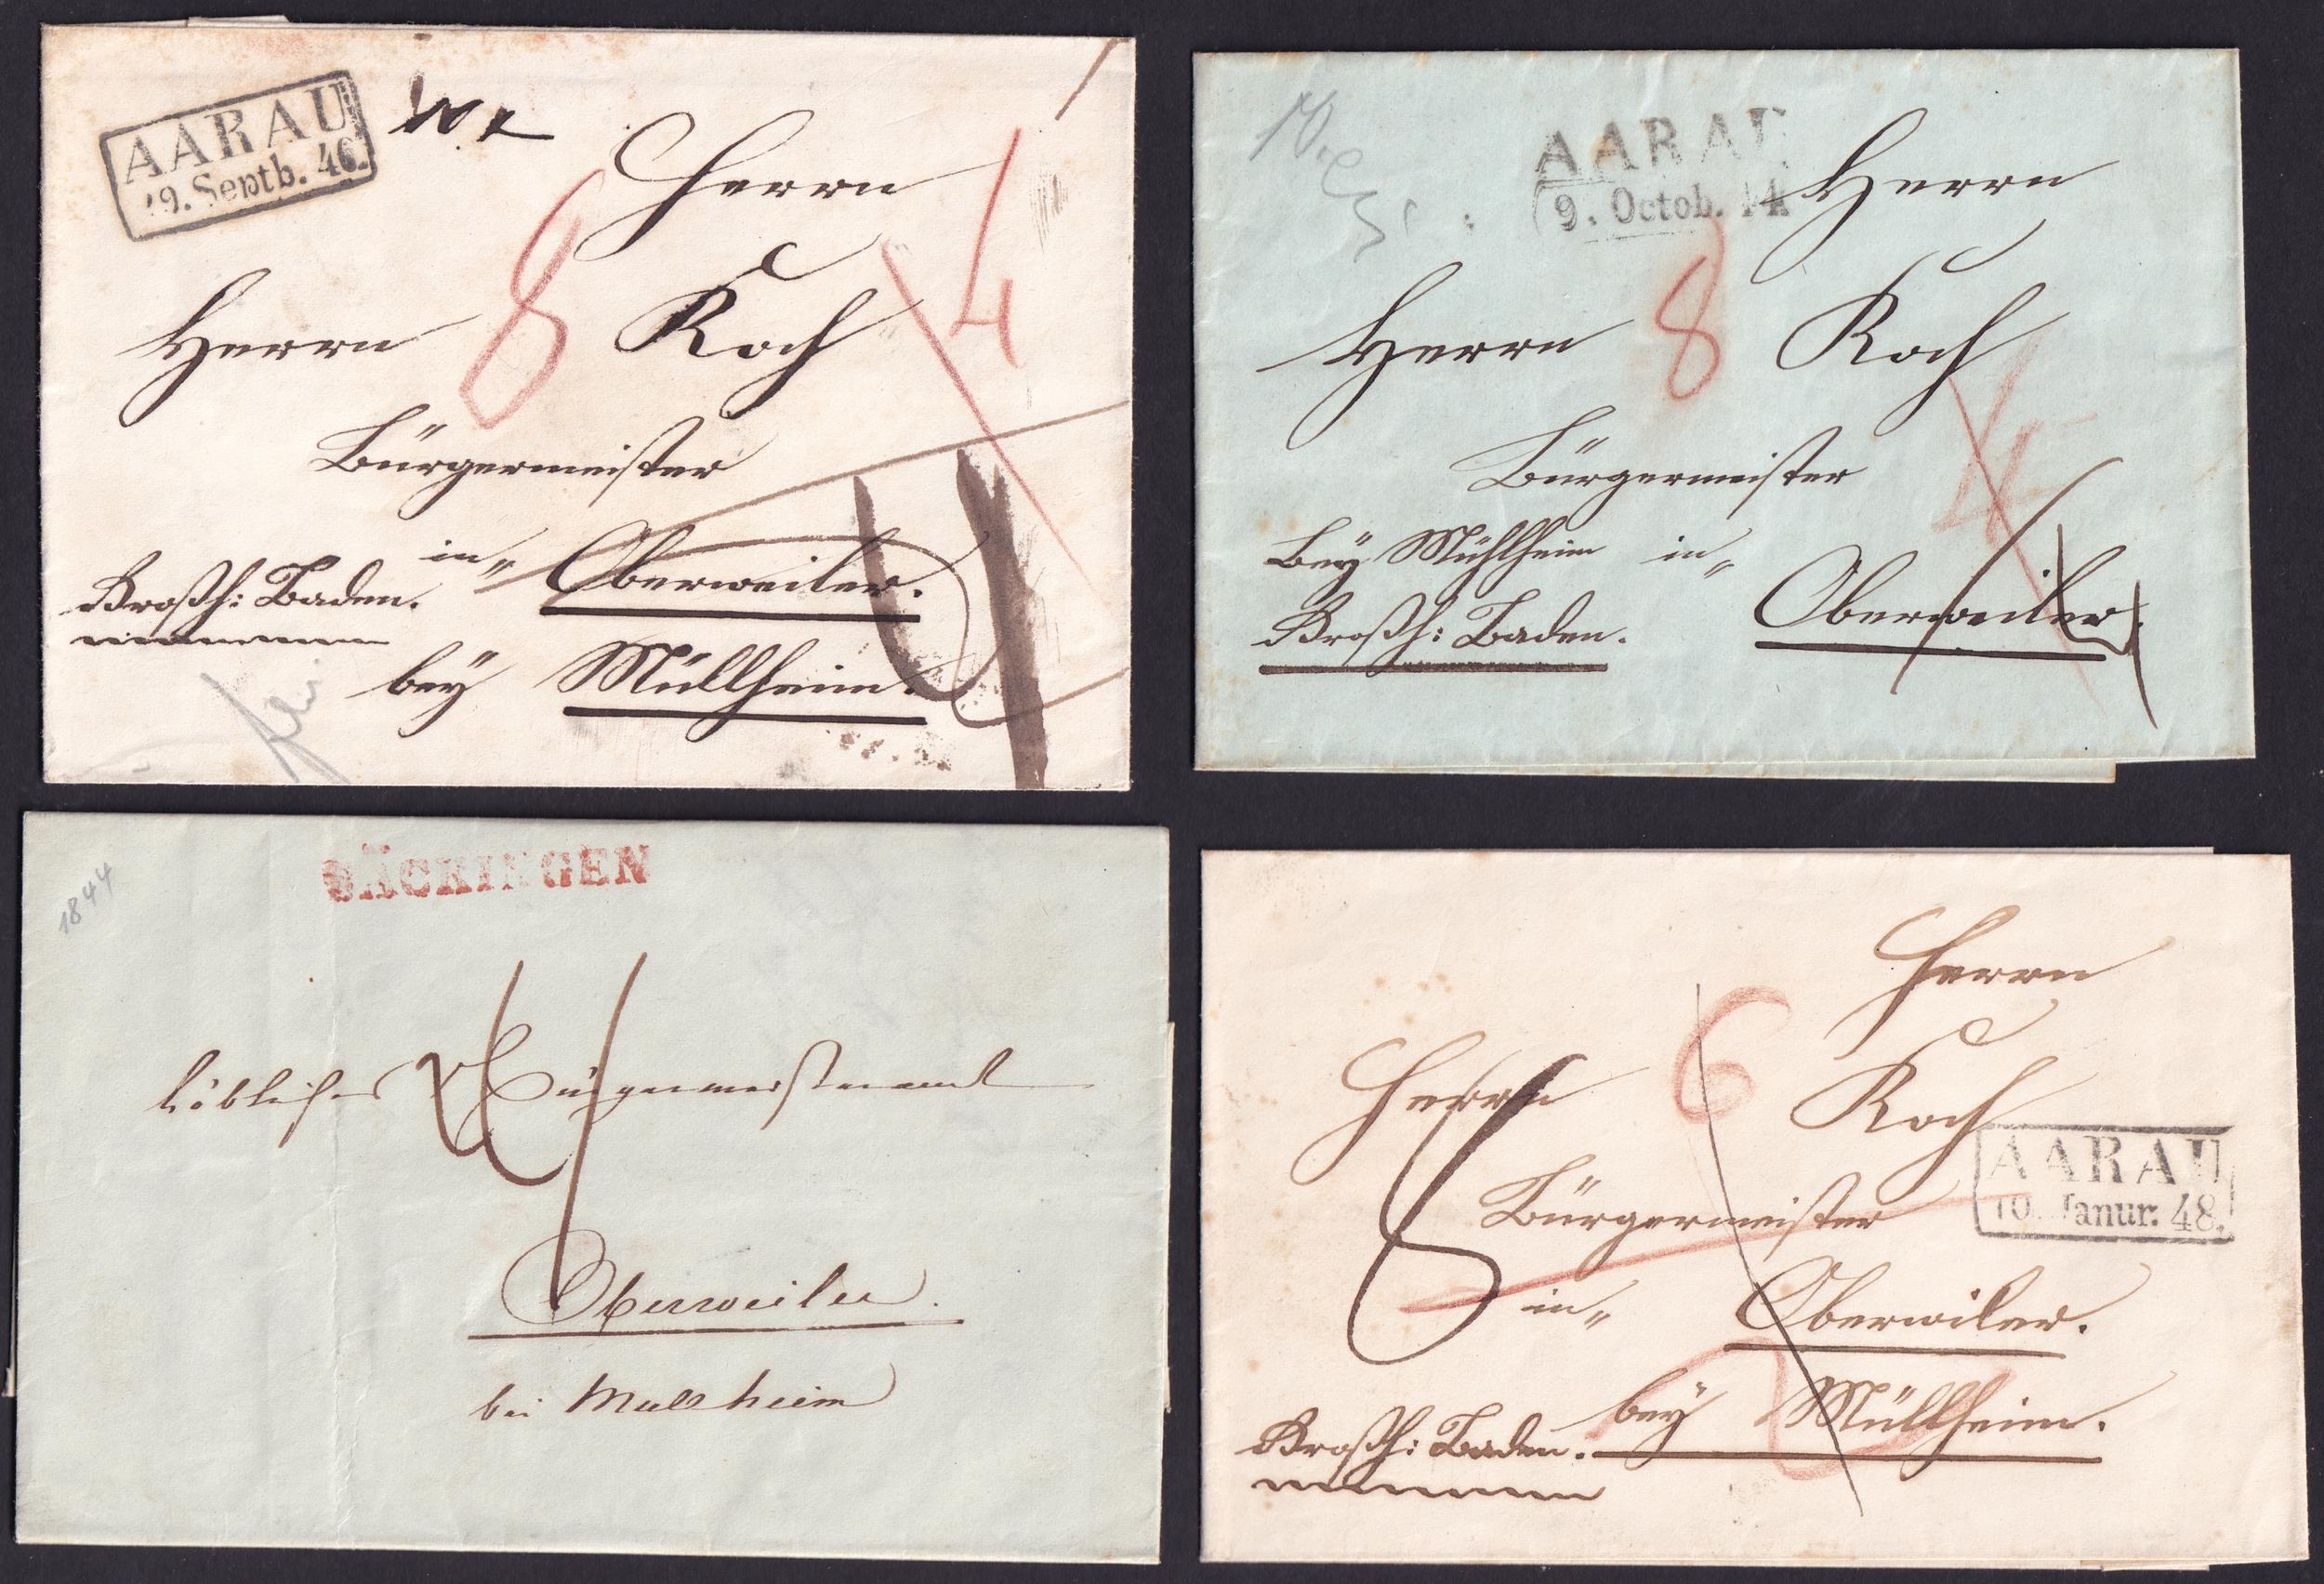 AARAU
19. Septb. 46.
Herrn
8
4
Herrn Koch
Bürgermeister
in„ Oberweiler.
Großh: Baden.
bey Müllheim.
AARAU
9. Octob. 44
Herrn
8
Herrn Koch
4
Bürgermeister
Bey Mühlheim in„
Oberweiler.
Großh: Baden.
1844
SÄCKINGEN
4
löbliches Bürgermeisteramt
Oberweiler.
bei Mullheim
Herrn
6
Herrn Koch
AARAU
10. Janur. 48.
Bürgermeister
in„ Oberwiler.
bey Müllheim.
Großh: Baden.